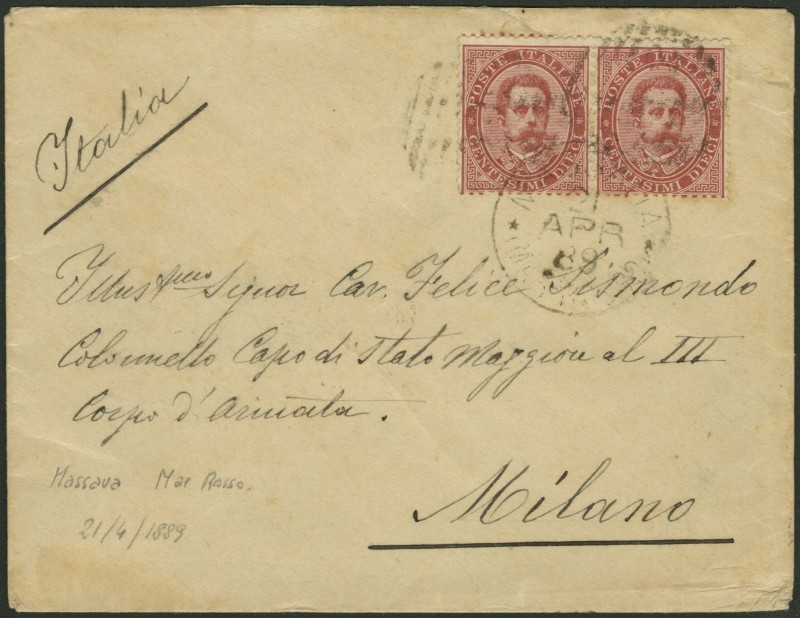 POSTE ITALIANE
CENTESIMI DIECI
POSTE ITALIANE
CENTESIMI DIECI
APR
89
Italia
Illustmo Signor Cav. Felice Sismondo
Colonnello Capo di Stato Maggiore al III
Corpo d'Armata.
Milano
Massava Mar Rosso.
21/4/1889